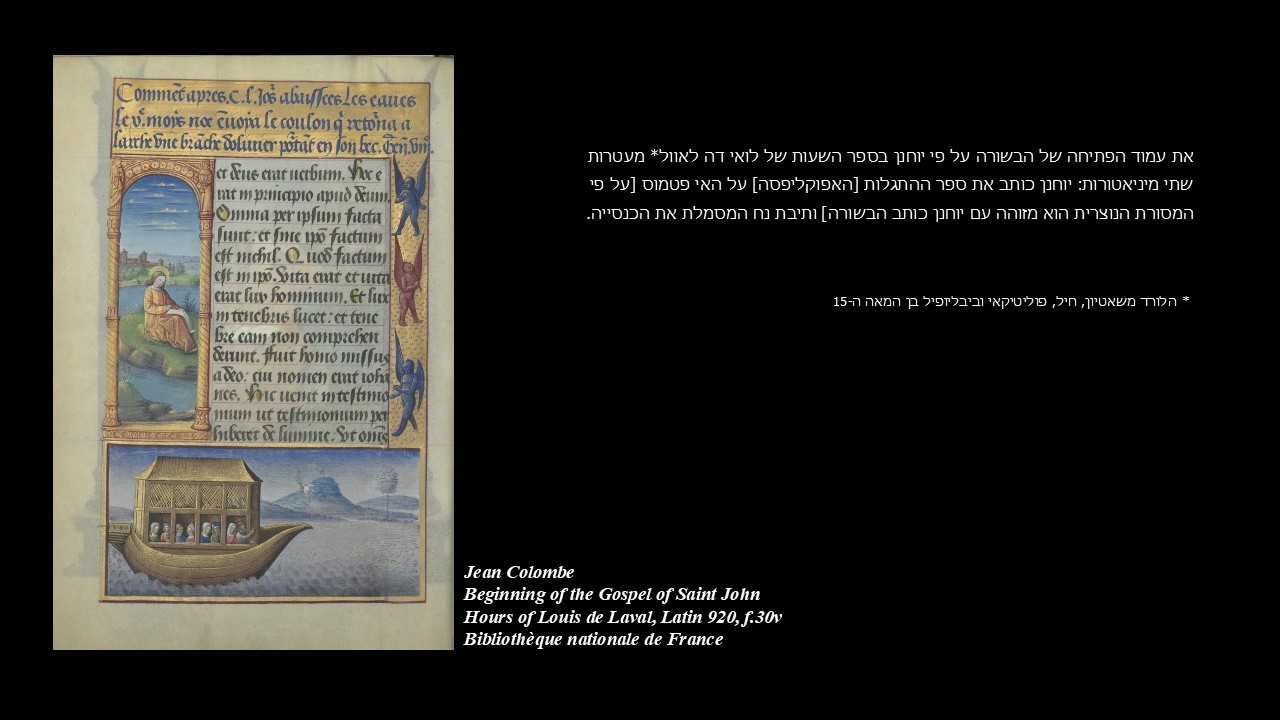 Comme͂t apres. C. l. Jo͂s abaissees Les eaues
le v͂. moys noe e͂uoya le coulon q͂ reto͂na a
larche vne bra͂che doliuier po͂ta͂t en son bec. Gen. viij.
et deus erat uerbum. Hoc e
rat in principio apud deum.
Omnia per ipsum facta
sunt: et sine ip͂o factum
est nichil. Quod factum
est in ip͂o. vita erat et uita
erat lux hominum. Et lux
in tenebris lucet: et tene
bre eam non comprehen
derunt. Fuit homo missus
a deo: cui nomen erat ioha
nes. Hic uenit in testimo
nium ut testimonium per
hiberet de lumine. Vt om͂s
את עמוד הפתיחה של הבשורה על פי יוחנן בספר השעות של לואי דה לאוול* מעטרות
שתי מיניאטורות: יוחנן כותב את ספר ההתגלות [האפוקליפסה] על האי פטמוס [על פי
המסורת הנוצרית הוא מזוהה עם יוחנן כותב הבשורה] ותיבת נח המסמלת את הכנסייה.
* הלורד משאטיון, חיל, פוליטיקאי וביבליופיל בן המאה ה-15
Jean Colombe
Beginning of the Gospel of Saint John
Hours of Louis de Laval, Latin 920, f.30v
Bibliothèque nationale de France